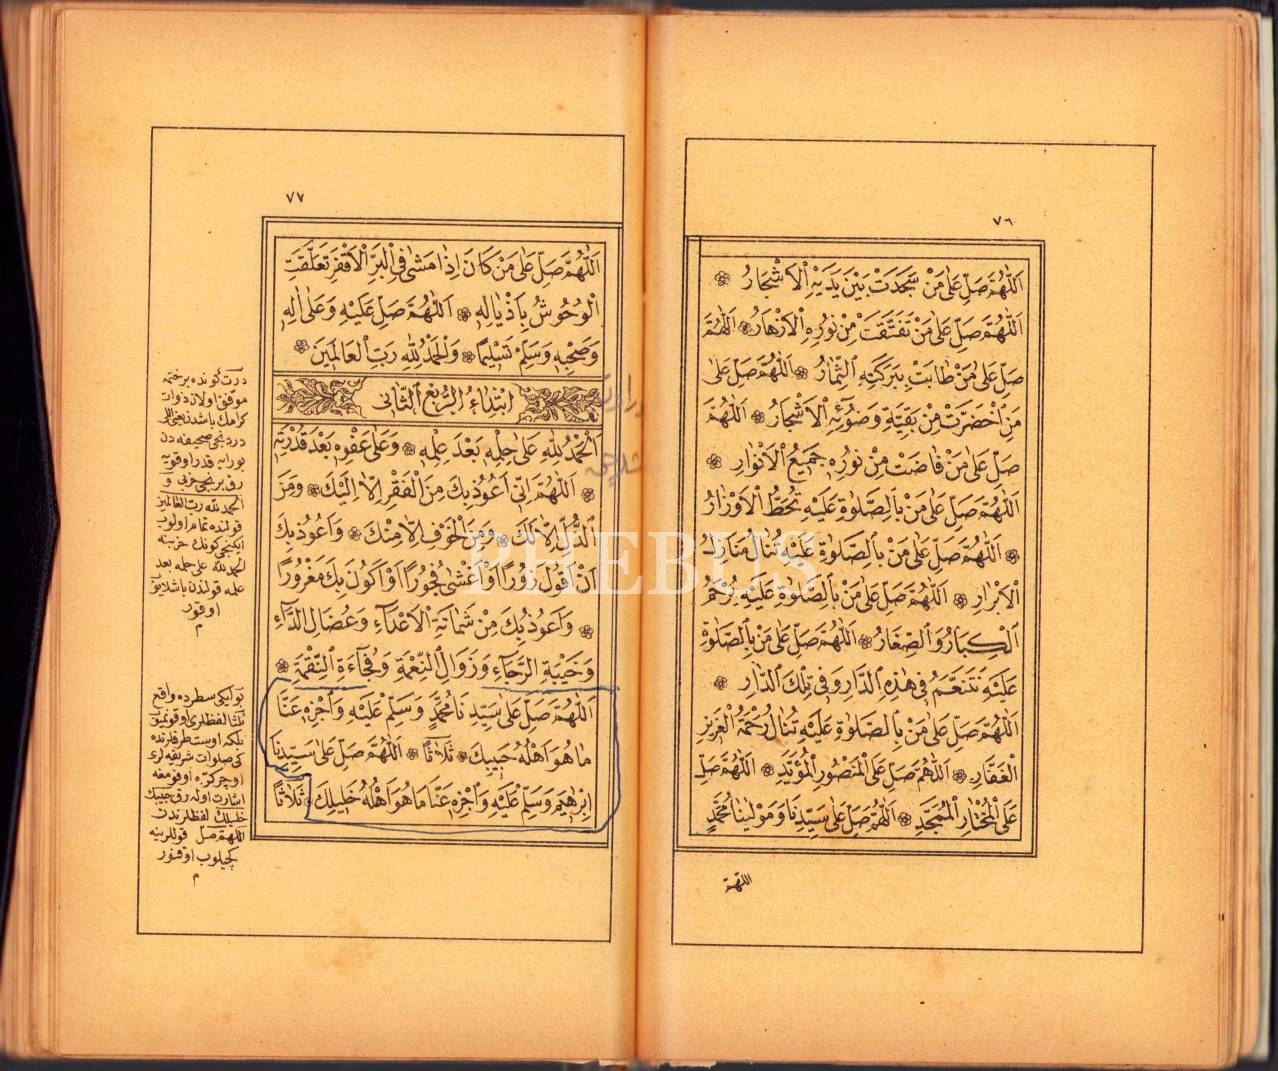 ٧٦
اَللّٰهُمَّ صَلِّ عَلٰى مَنْ سَجَدَتْ بَيْنَ يَدَيْهِ الْاَشْجَارُ
اَللّٰهُمَّ صَلِّ عَلٰى مَنْ تَفَتَّقَتْ مِنْ نُورِهِ الْاَزْهَارُ اَللّٰهُمَّ
صَلِّ عَلٰى مَنْ طَابَتْ بِبَرَكَتِهِ الثِّمَارُ اَللّٰهُمَّ صَلِّ عَلٰى
مَنِ اخْضَرَّتْ مِنْ بَقِيَّةِ وَضُوئِهِ الْاَشْجَارُ اَللّٰهُمَّ
صَلِّ عَلٰى مَنْ فَاضَتْ مِنْ نُورِهِ جَمِيعُ الْاَنْوَارِ
اَللّٰهُمَّ صَلِّ عَلٰى مَنْ بِالصَّلٰوةِ عَلَيْهِ تُحَطُّ الْاَوْزَارُ
اَللّٰهُمَّ صَلِّ عَلٰى مَنْ بِالصَّلٰوةِ عَلَيْهِ تُنَالُ مَنَازِلُ
الْاَبْرَارِ اَللّٰهُمَّ صَلِّ عَلٰى مَنْ بِالصَّلٰوةِ عَلَيْهِ يُرْحَمُ
الْكِبَارُ وَالصِّغَارُ اَللّٰهُمَّ صَلِّ عَلٰى مَنْ بِالصَّلٰوةِ
عَلَيْهِ نَتَنَعَّمُ فِي هٰذِهِ الدَّارِ وَفِي تِلْكَ الدَّارِ
اَللّٰهُمَّ صَلِّ عَلٰى مَنْ بِالصَّلٰوةِ عَلَيْهِ تُنَالُ رَحْمَةُ الْعَزِيزِ
الْغَفَّارِ اَللّٰهُمَّ صَلِّ عَلَى الْمَنْصُورِ الْمُؤَيَّدِ اَللّٰهُمَّ صَلِّ
عَلَى الْمُخْتَارِ الْمُمَجَّدِ اَللّٰهُمَّ صَلِّ عَلٰى سَيِّدِنَا وَمَوْلٰينَا مُحَمَّدٍ
اللّٰهمّ
٧٧
اَللّٰهُمَّ صَلِّ عَلٰى مَنْ كَانَ اِذَا مَشٰى فِي الْبَرِّ الْاَقْفَرِ تَعَلَّقَتِ
الْوُحُوشُ بِاَذْيَالِهِ اَللّٰهُمَّ صَلِّ عَلَيْهِ وَعَلٰى اٰلِهِ
وَصَحْبِهِ وَسَلِّمْ تَسْلِيمًا وَالْحَمْدُ لِلّٰهِ رَبِّ الْعَالَمِينَ
اِبْتِدَاءُ الرُّبْعِ الثَّانِي
اَلْحَمْدُ لِلّٰهِ عَلٰى حِلْمِهِ بَعْدَ عِلْمِهِ وَعَلٰى عَفْوِهِ بَعْدَ قُدْرَتِهِ
اَللّٰهُمَّ اِنِّي اَعُوذُ بِكَ مِنَ الْفَقْرِ اِلَّا اِلَيْكَ وَمِنَ
الذُّلِّ اِلَّا لَكَ وَمِنَ الْخَوْفِ اِلَّا مِنْكَ وَاَعُوذُ بِكَ
اَنْ اَقُولَ زُورًا اَوْ اَغْشٰى فُجُورًا اَوْ اَكُونَ بِكَ مَغْرُورًا
وَاَعُوذُ بِكَ مِنْ شَمَاتَةِ الْاَعْدَاءِ وَعُضَالِ الدَّاءِ
وَخَيْبَةِ الرَّجَاءِ وَزَوَالِ النِّعْمَةِ وَفُجَاءَةِ النِّقْمَةِ
اَللّٰهُمَّ صَلِّ عَلٰى سَيِّدِنَا مُحَمَّدٍ وَسَلِّمْ عَلَيْهِ وَاَجْزِهِ عَنَّا
مَا هُوَ اَهْلُهُ حَبِيبِكَ ثَلَاثًا اَللّٰهُمَّ صَلِّ عَلٰى سَيِّدِنَا
اِبْرٰهِيمَ وَسَلِّمْ عَلَيْهِ وَاَجْزِهِ عَنَّا مَا هُوَ اَهْلُهُ خَلِيلِكَ ثَلَاثًا
درت كونده برختمه
موفق اولان ذوات
كرامك باشدن يغنى اللى
دردنجى صحيفه دن
بورايه قدر اوقويه
رق برنجى حزبى و
الحمد لله رب العالمين
قولنده تمام اولوب
ايكنجى كونك حزبنه
الحمد لله على حلمه بعد
علمه قولندن باشلايوب
اوقور
م
بو ايكى سطرده واقع
ثلثا لفظلرى اوقونميوب
بلكه اوست طرفلرنده
كى صلوات شريفه لرى
اوچر كره اوقومغه
اشارت اوله رق حبيبك
خليلك لفظلرندن
اللهم صل قوللرينه
كچيلوب اوقنور
م
PHEBUS